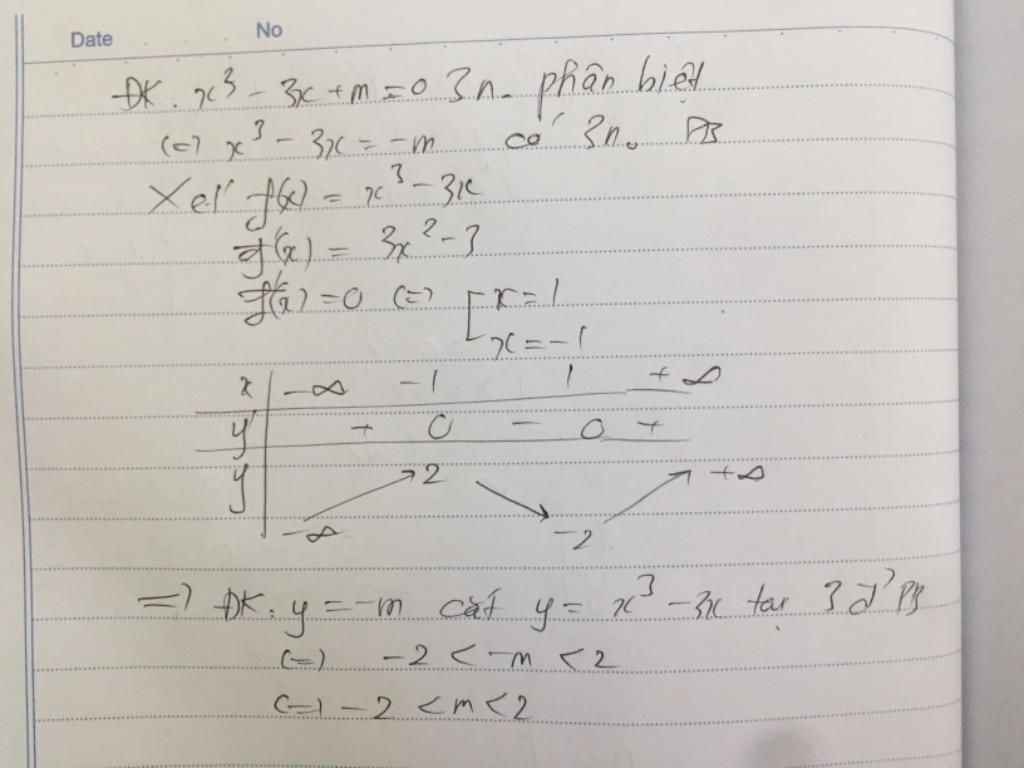 Date No
ĐK: x³ - 3x + m = 0 3 n. phân biệt
(=) x³ - 3x = -m có 3 n. PB
Xét f(x) = x³ - 3x
f'(x) = 3x² - 3
f'(x) = 0 (=) [ x = 1
x = -1
x -∞ -1 1 +∞
y' + 0 - 0 +
y 2 +∞
-∞ -2
=) ĐK: y = -m cắt y = x³ - 3x tại 3 đ' PB
(=) -2 < -m < 2
(=) -2 < m < 2